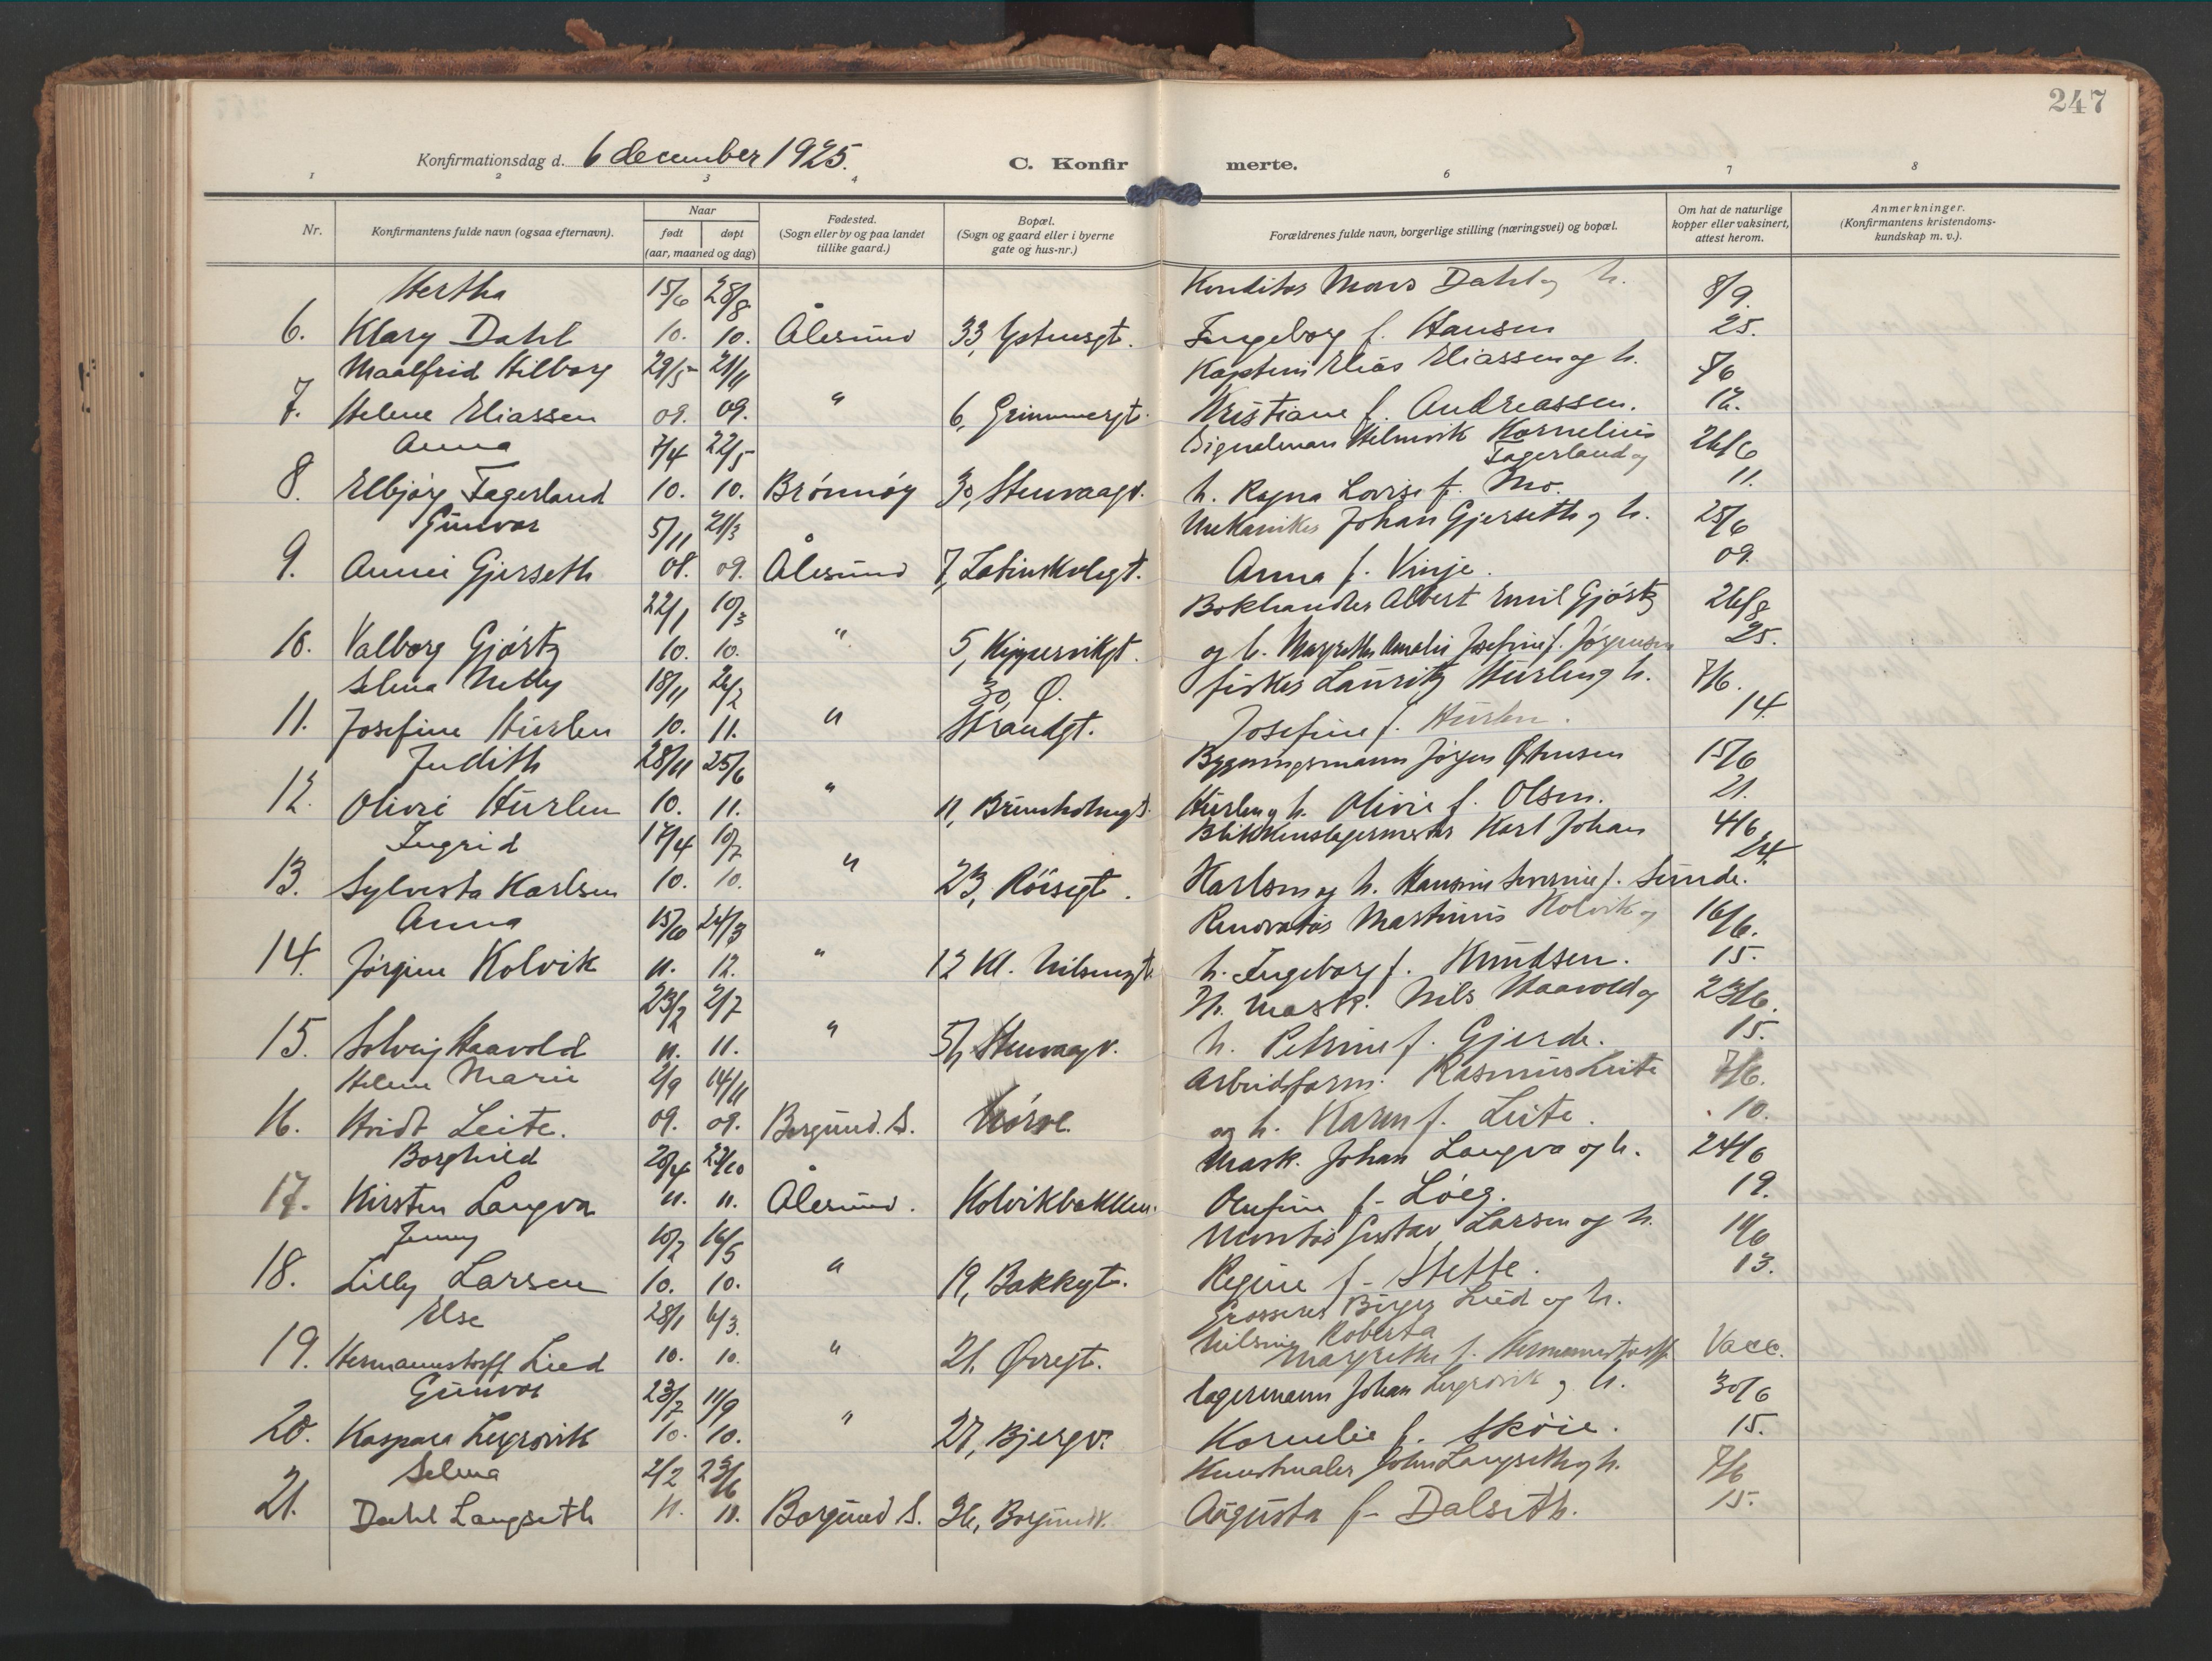 247
Konfirmationsdag d. 6 december 1925.
C. Konfirmerte.
1 2 3 4 6 7 8
Nr.
Konfirmantens fulde navn (ogsaa efternavn).
Naar
født døpt
(aar, maaned og dag)
Fødested.
(Sogn eller by og paa landet
tillike gaard.)
Bopæl.
(Sogn og gaard eller i byerne
gate og hus-nr.)
Forældrenes fulde navn, borgerlige stilling (næringsvei) og bopæl.
Om hat de naturlige
kopper eller vaksinert,
attest herom.
Anmerkninger.
(Konfirmantens kristendoms-
kundskap m. v.).
Hertha 15/6 28/8 Konditor Mons Dahl og h. 8/9.
6. Klary Dahl 10. 10. Ålesund 33, Ingeborg f. Hansen 25.
Maalfrid Hilborg 29/5 21/11 Kaptein Elias Eliassen og h. 7/6
7. Helene Eliassen 09. 09. " 6, Grimmergt. Kristiane f. Andreassen. 12.
Anna 7/4 22/5 Signalman Kornelius 26/6
Fagerland og
8. Elbjørg Fagerland 10. 10. Brønnøy 30, Stenvaagv. h. Ragna Lovise f. Mo. 11.
Gunvor 5/11 21/3 Mekaniker Johan Gjerseth og h. 25/6
9. Annei Gjerseth 08. 09. Ålesund 7, Latinskolegt. Anna f. Vinje. 09.
22/1 10/3 Bokhandler Albert Emil Gjørtz 26/8
10. Valborg Gjørtz 10. 10. " 5, Kippervikgt. og h. Margrethe Amalie Josefine f. Jørgensen 25.
Selma Nelly 18/11 26/2 30, Ø. fisker Lauritz Hurlen og h. 7/6.
11. Josefine Hurlen 10. 11. " Strandgt. Josefine f. Hurlen. 14.
Judith 28/11 25/6 Bygningsmann Jørgen Østensen 15/6
12. Olivie Hurlen 10. 11. " 11, Brunholmgt. Hurlen og h. Olivie f. Olsen. 21.
Ingrid 17/4 10/7 Blikkenslagermester Karl Johan 4/6
13. Sylvesta Karlsen 10. 10. " 23, Røisegt. Karlsen og h. Hansine Severine f. Sunde. 24.
Anna 15/10 24/3 Renovatør Martinus Kolvik og 16/6.
14. Jørgine Kolvik 11. 12. " 12 Kl. Nilsengt. h. Ingeborg f. Knudsen. 15.
23/2 2/7 Fh. Mask. Nils Haavold og 23/6.
15. Solveig Haavold 11. 11. " 57, Stenvaagv. h. Petrine f. Gjerde. 15.
Helene Marie 2/9 14/11 Arbeidsform. Rasmus Leite 7/6.
16. Hvidt Leite. 09. 09. Borgund. S. Nørve og h. Karen f. Leite. 10.
Borghild 20/4 22/10 Mask. Johan Langva og h. 24/6
17. Kirsten Langva 11. 11. Ålesund. Kolvikbakken. Olufine f. Løeg. 19.
Jenny 10/2 16/5 Montør Gustav Larsen og h. 14/6
18. Lilly Larsen 10. 10. " 19, Bakkegt. Regine f. Stette. 13.
Else 28/1 6/3. Grosserer Birger Lied og h.
Nilsine Roberta
19. Hermannstorff Lied 10. 10. " 21. Øvregt. Margrethe f. Hermannstorff Vacc.
Gunvor 23/7 11/9 lagermann Johan Legrøvik og h. 30/6
20. Kaspara Legrøvik 10. 10. " 27, Bjergv. Kornelie f. Skøie. 15.
Selma 2/2 23/6 Kunstmaler John Langseth og h. 7/6
21. Dahl Langseth 11. 11. Borgund S. 36, Borgundv. Augusta f. Dalseth. 15.